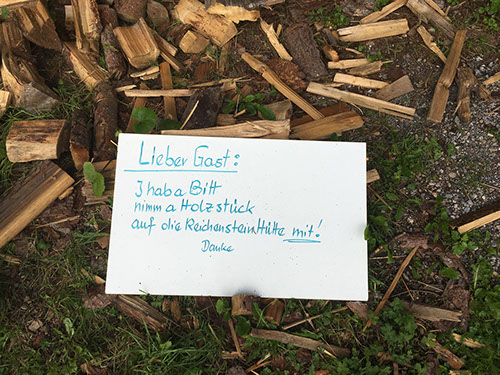 Lieber Gast:
I hab a Bitt
nimm a Holzstück
auf die Reichenstein Hütte mit!
Danke